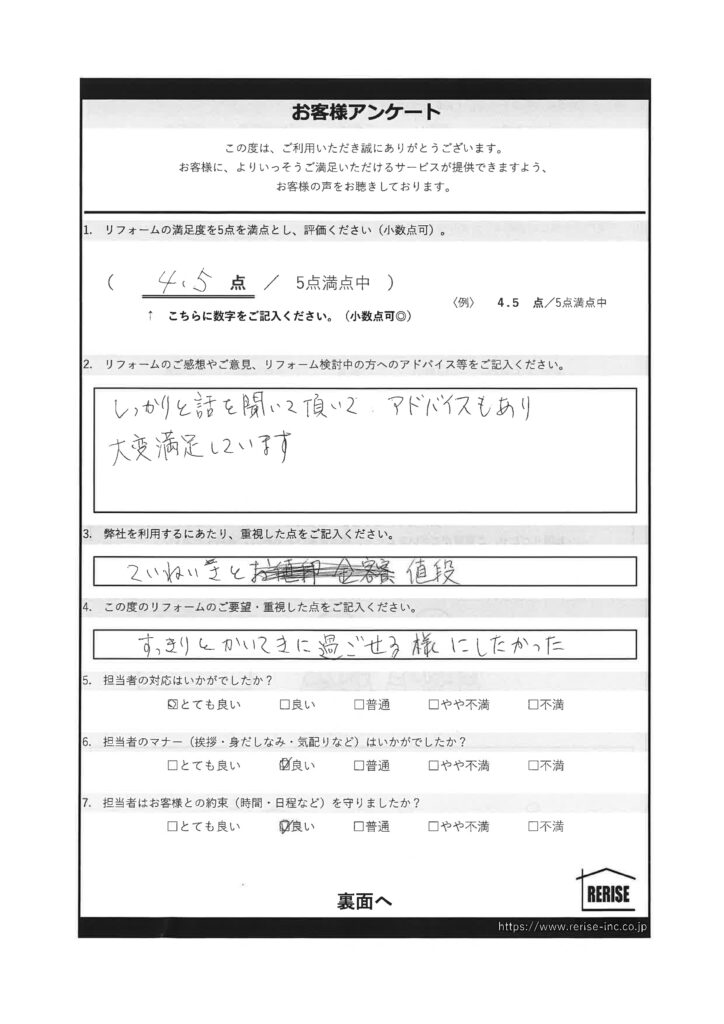 お客様アンケート
この度は、ご利用いただき誠にありがとうございます。
お客様に、よりいっそうご満足いただけるサービスが提供できますよう、
お客様の声をお聴きしております。
1. リフォームの満足度を5点を満点とし、評価ください（小数点可）。
（ 4.5 点 ／ 5点満点中 ）
〈例〉 4.5 点／5点満点中
↑ こちらに数字をご記入ください。（小数点可◎）
2. リフォームのご感想やご意見、リフォーム検討中の方へのアドバイス等をご記入ください。
しっかりと話を聞いて頂いて、アドバイスもあり
大変満足しています
3. 弊社を利用するにあたり、重視した点をご記入ください。
ていねいさと 値段
4. この度のリフォームのご要望・重視した点をご記入ください。
すっきりとかいてきに過ごせる様にしたかった
5. 担当者の対応はいかがでしたか？
☑とても良い □良い □普通 □やや不満 □不満
6. 担当者のマナー（挨拶・身だしなみ・気配りなど）はいかがでしたか？
□とても良い ☑良い □普通 □やや不満 □不満
7. 担当者はお客様との約束（時間・日程など）を守りましたか？
□とても良い ☑良い □普通 □やや不満 □不満
裏面へ
RERISE
https://www.rerise-inc.co.jp